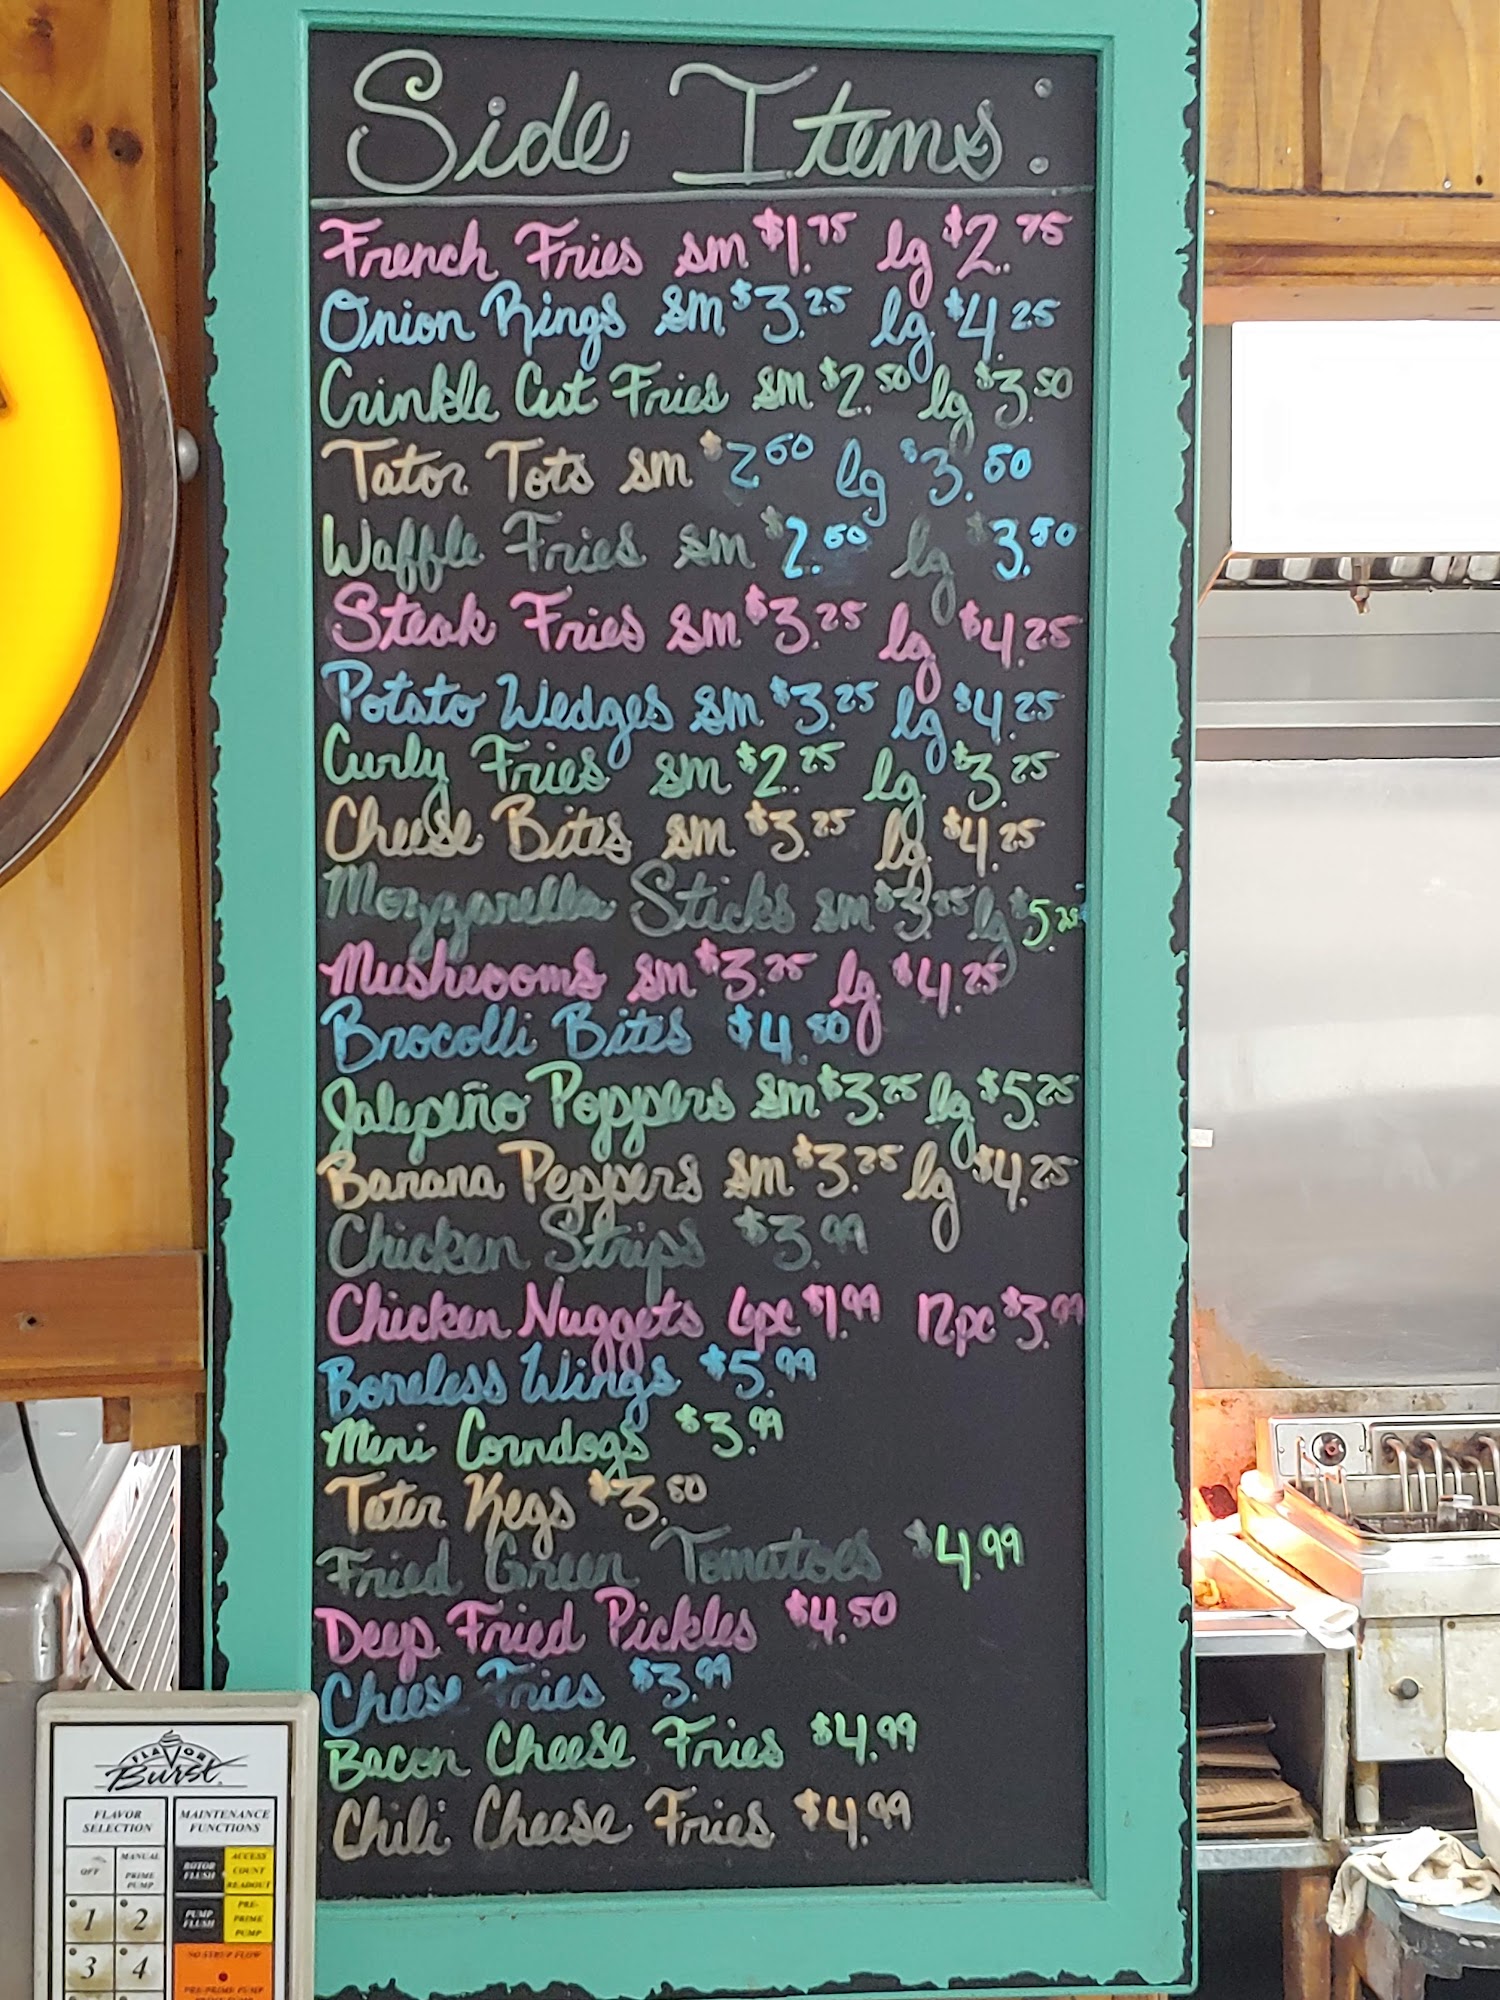 Side Items:
French Fries sm $1.75 lg $2.75
Onion Rings sm $3.25 lg $4.25
Crinkle Cut Fries sm $2.50 lg $3.50
Tator Tots sm $2.50 lg $3.50
Waffle Fries sm $2.50 lg $3.50
Steak Fries sm $3.25 lg $4.25
Potato Wedges sm $3.25 lg $4.25
Curly Fries sm $2.25 lg $3.25
Cheese Bites sm $3.25 lg $4.25
Mozzarella Sticks sm $3.25 lg $5.25
Mushrooms sm $3.25 lg $4.25
Brocolli Bites $4.50
Jalepeño Poppers sm $3.25 lg $5.25
Banana Peppers sm $3.25 lg $4.25
Chicken Strips $3.99
Chicken Nuggets 6pc $1.99 12pc $3.99
Boneless Wings $5.99
Mini Corndogs $3.99
Tater Kegs $3.50
Fried Green Tomatoes $4.99
Deep Fried Pickles $4.50
Cheese Fries $3.99
Bacon Cheese Fries $4.99
Chili Cheese Fries $4.99
FLAVOR
Burst
FLAVOR
SELECTION
MAINTENANCE
FUNCTIONS
OFF
MANUAL
PRIME
PUMP
ROTOR
FLUSH
ACCESS
COUNT
READOUT
1
2
PUMP
FLUSH
PRE-
PRIME
PUMP
3
4
NO SYRUP FLOW